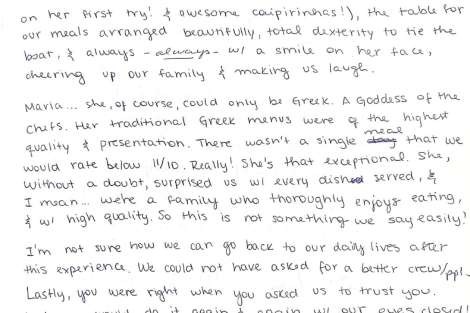 on her first try! & awesome caipirinhas!), the table for
our meals arranged beautifully, total dexterity to tie the
boat, & always - always - w/ a smile on her face,
cheering up our family & making us laugh.
Maria... she, of course, could only be Greek. A Goddess of the
Chefs. Her traditional Greek menus were of the highest
quality & presentation. There wasn't a single meal that we
would rate below 11/10. Really! She's that exceptional. She,
without a doubt, surprised us w/ every dish served, &
I mean... we're a family who thoroughly enjoys eating,
& w/ high quality. So this is not something we say easily!
I'm not sure how we can go back to our daily lives after
this experience. We could not have asked for a better crew/ppl.
Lastly, you were right when you asked us to trust you.
do it again & again w/ our eyes closed!